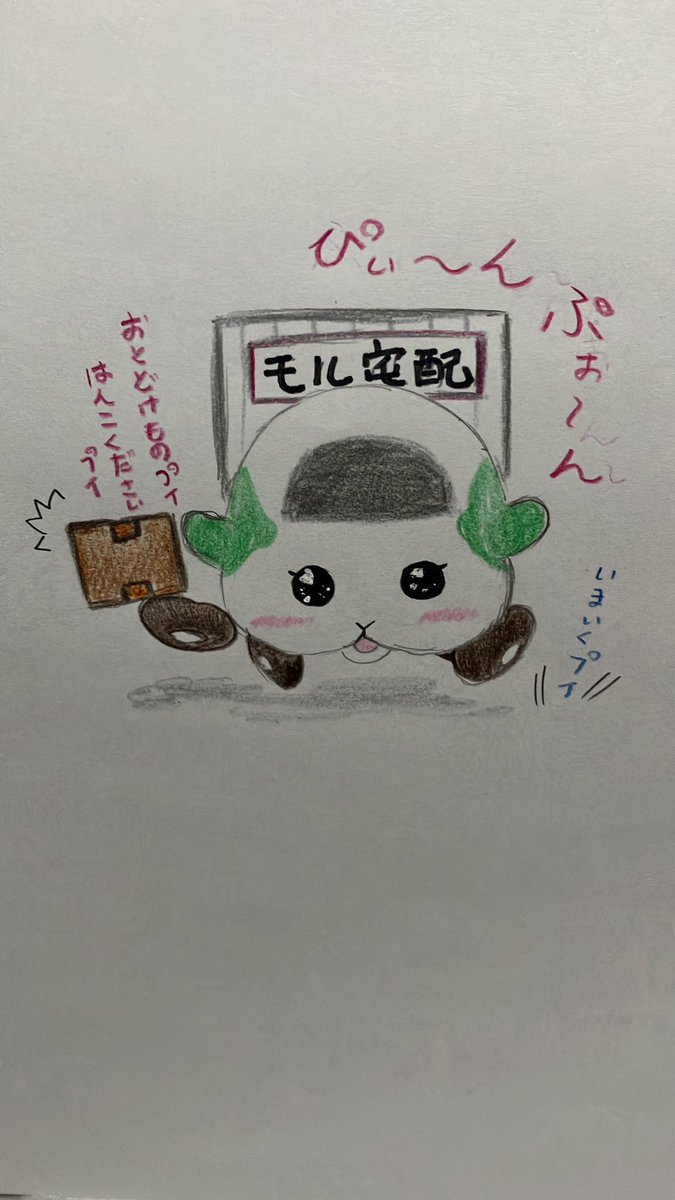 ぴぃ〜ん
ぷぉ〜ん
モル宅配
おとどけものプイ
はんこください
プイ
いまいくプイ